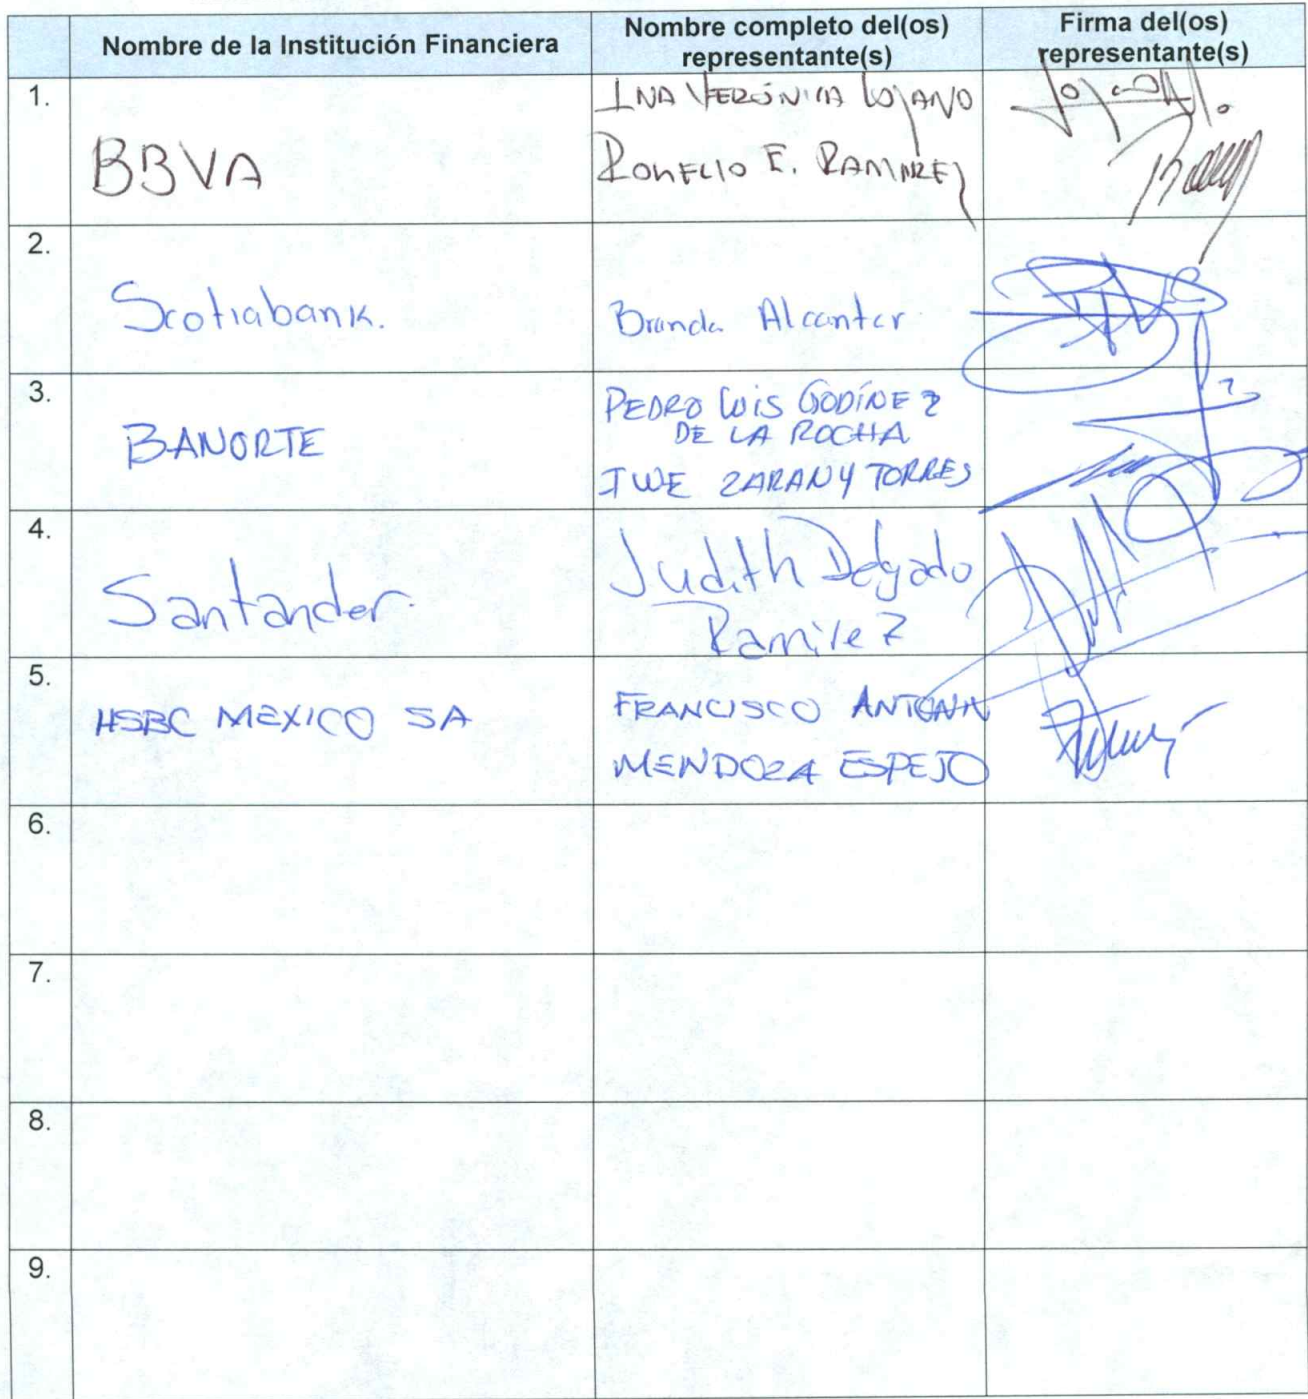 Nombre de la Institución Financiera
Nombre completo del(os)
representante(s)
Firma del(os)
representante(s)
1.
BBVA
INA VERÓNICA LOZANO
E. RAMIREZ
2.
Scotiabank.
Brenda Alcantar
3.
BANORTE
PEDRO LUIS GODÍNEZ
DE LA ROCHA
ZARANY TORRES
4.
Santander
Judith Delgado
Ramirez
5.
HSBC MEXICO SA
FRANCISCO ANTONIO
MENDOZA ESPEJO
6.
7.
8.
9.